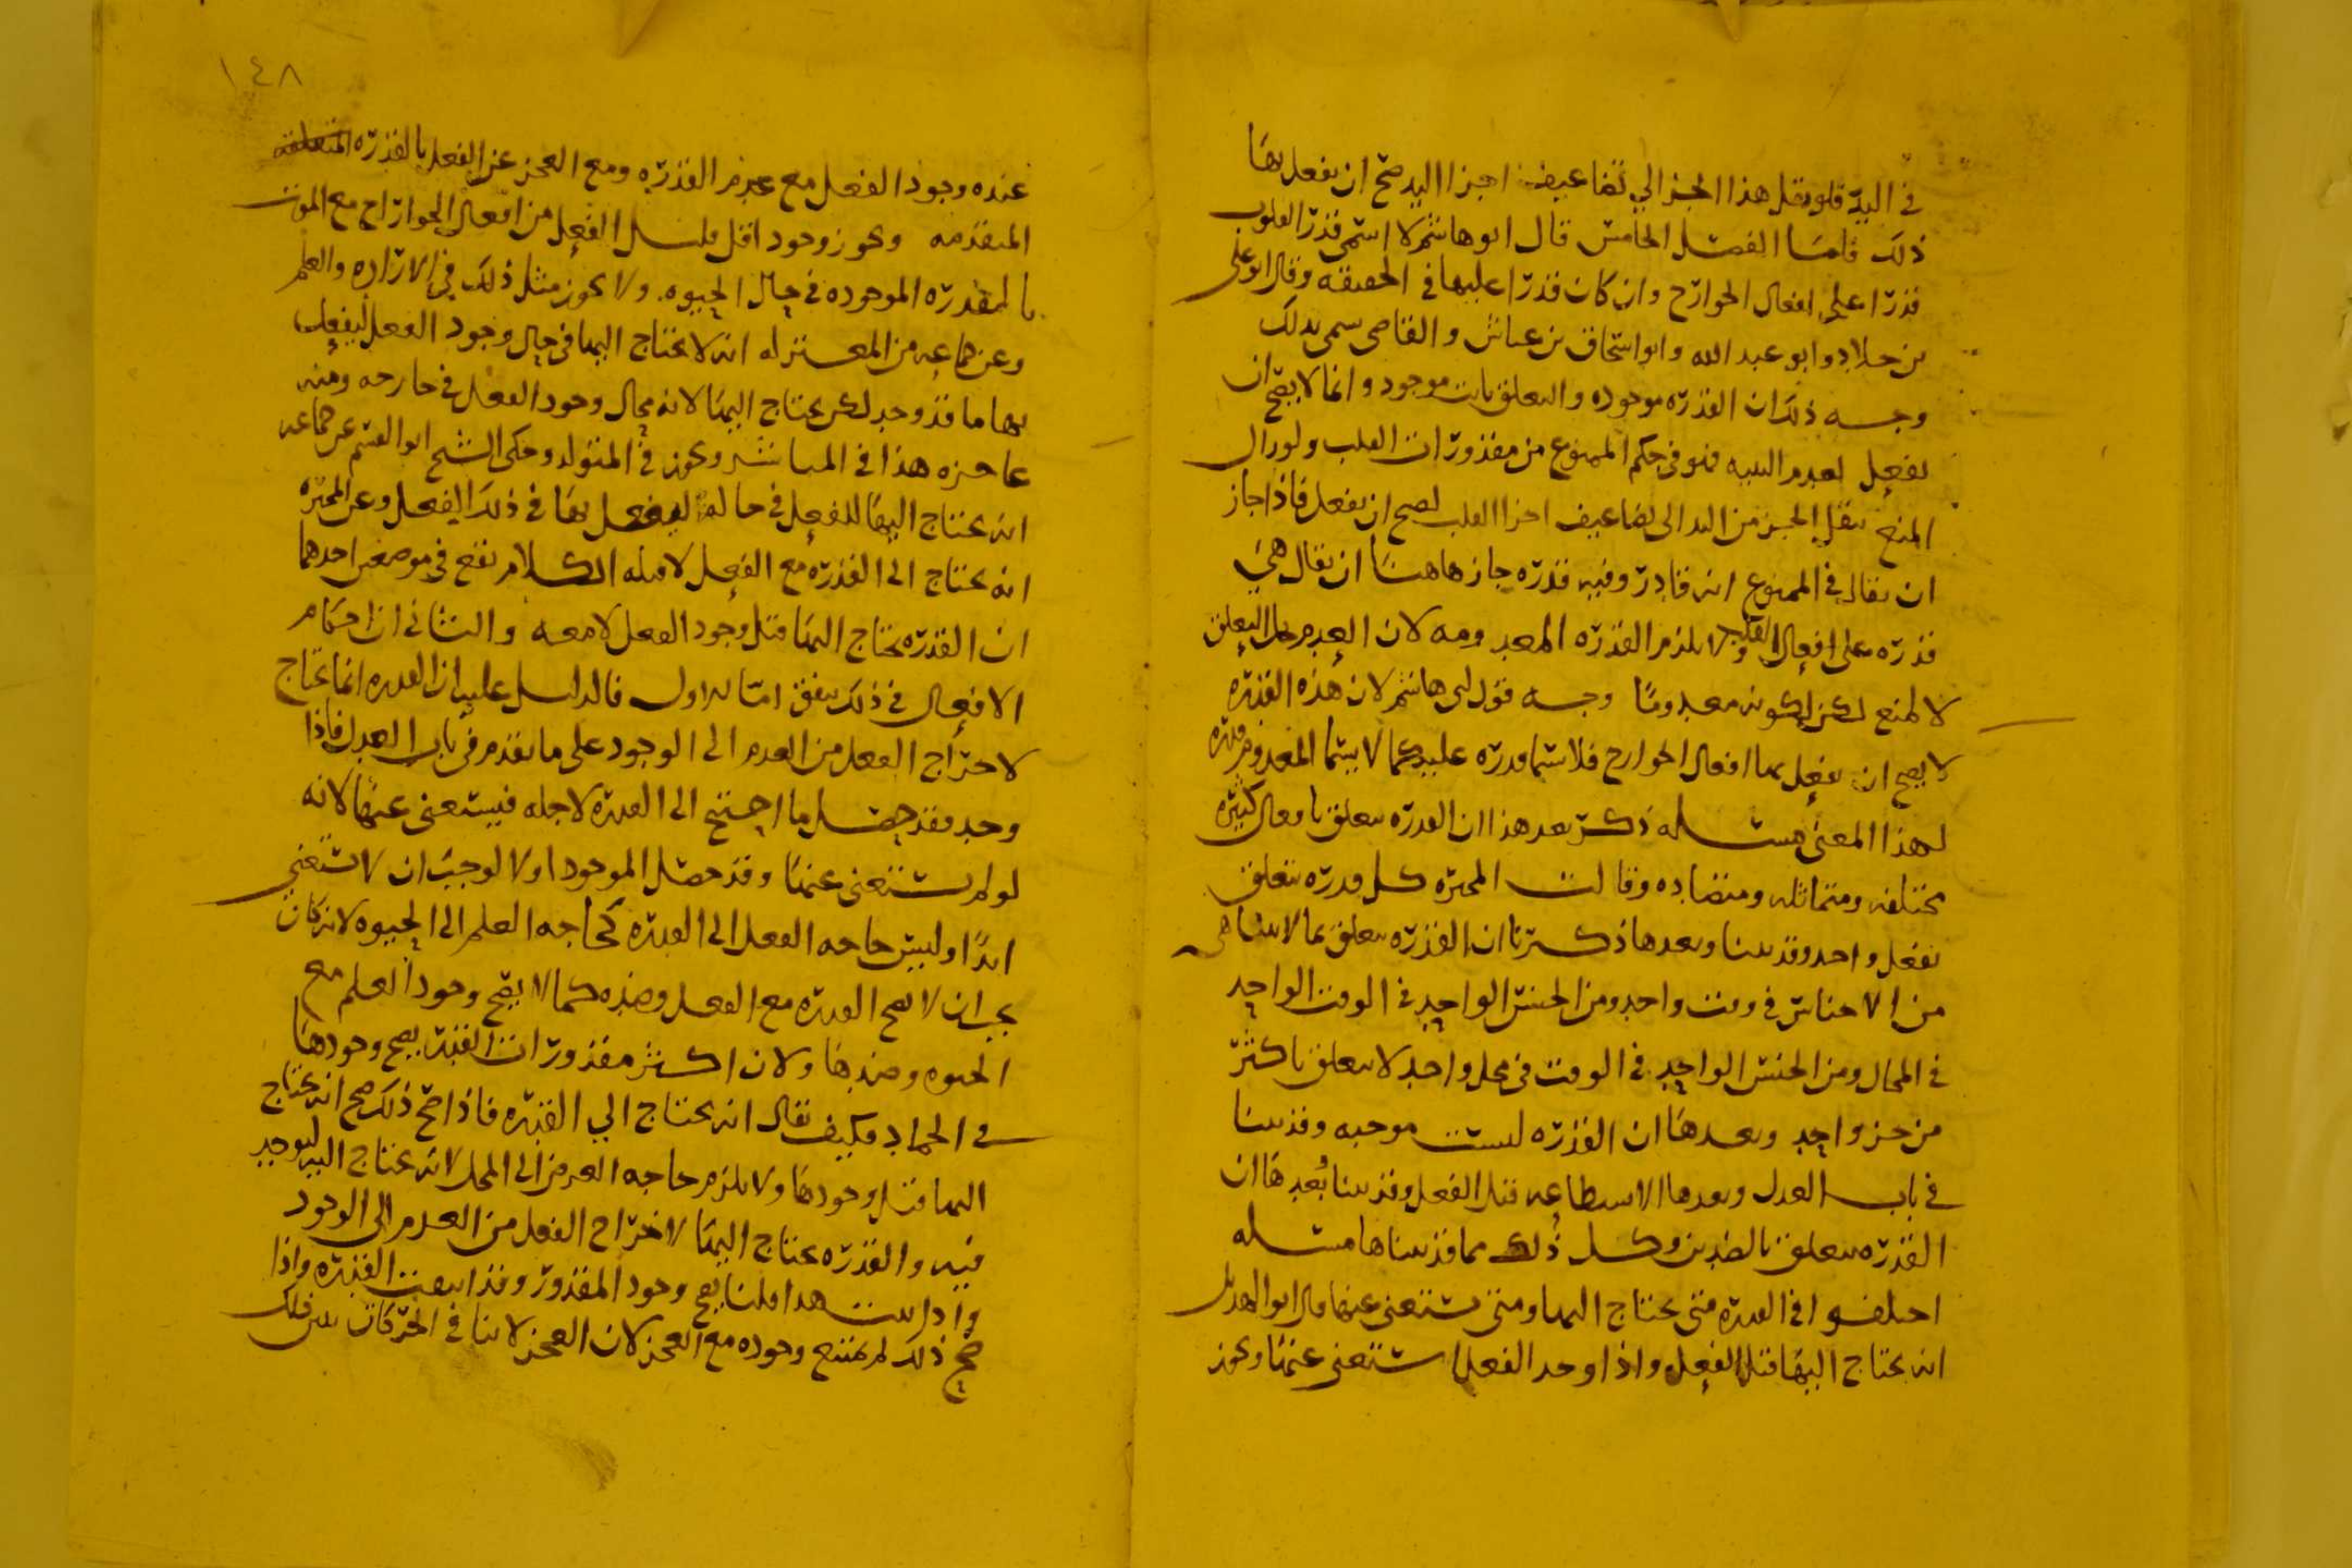 في اليد فلو نقل هذا الجزا الي تضاعيف اجزا اليد صح ان يفعل بها
ذلك فاما الفصل الخامس قال ابو هاشم لا اسمي قدر القلوب
قدرا على افعال الجوارح وان كان قدرا عليها في الحقيقه وقال ابو علي
بن خلاد وابو عبد الله وابو اسحاق بن عياش والقاضي يسمى بذلك
وجه ذلك ان القدره موجوده والتعلق ثابت موجود وانما لا يصح ان
يفعل لعدم البنيه فهو في حكم الممنوع من مقدورات القلب ولو زال
المنع بنقل الجزء من اليد الى تضاعيف اجزا القلب لصح ان يفعل فاذا جاز
ان يقال في الممنوع انه قادر وفيه قدره جاز هاهنا ان يقال هي
قدره على افعال القلوب ولا يلزم القدره المعدومه لان العدم يحيل التعلق
لا لمنع لكن لكونه معدوما وجه قول ابي هاشم لان هذه القدره
لا يصح ان يفعل بها افعال الجوارح فلا تسما قدره عليه كما لا يسما المعدوم قدره
لهذا المعنى مسله ذكر بعد هذا ان القدره تتعلق بافعال كثيره
مختلفه ومتماثله ومتضاده وقالت المجبره كل قدره تتعلق
بفعل واحد وقد بينا وبعدها ذكرنا ان القدره تتعلق بما لا يتناهى
من الاجناس في وقت واحد ومن الجنس الواحد في الوقت الواحد
في المحال ومن الجنس الواحد في الوقت في محل واحد لا يتعلق باكثر
من جز واحد وبعدها ان القدره ليست موجبه وقد بينا
في باب العدل وبعدها الاستطاعه قبل الفعل وقد بينا بعدها ان
القدره تتعلق بالضدين وكل ذلك مما قد بيناها مسله
اختلفوا في القدره متى يحتاج اليها ومتى يستغنى عنها قال ابو الهذيل
انه يحتاج اليها قبل الفعل واذا وجد الفعل استغنى عنها ويجوز
١٤٨
عنده وجود الفعل مع عدم القدره ومع العجز عن الفعل بالقدره
المتقدمه ويجوز وجود اقل قليل الفعل من افعال الجوارح مع الموت
بالقدره الموجوده في حال الحيوه ولا يجوز مثل ذلك في الاراده والعلم
وعن جماعه من المعتزله انه لا يحتاج اليها في حال وجود الفعل ليفعل
بها ما قد وجد لكن يحتاج اليها لانه محال وجود الفعل في جارحه ومنه
عاجزه هذا في المباشر ويجوز في المتولد وحكى الشيخ ابو القسم عن جماعه
انه يحتاج اليها للفعل في حاله ليفعل بها في ذلك الفعل وعن المجبره
انه يحتاج الى القدره مع الفعل لا قبله الكلام يقع في موضعين احدهما
ان القدره يحتاج اليها قبل وجود الفعل لا معه والثاني ان احكام
الافعال في ذلك يتفق اما الاول فالدليل عليه ان القدره انما يحتاج
لاخراج الفعل من العدم الى الوجود على ما تقدم في باب العدل فاذا
وجد فقد حصل ما احتيج الى القدره لاجله فيستغنى عنها لانه
لو لم يستغنى عنها وقد حصل الموجود اولا لوجب ان لا يستغني
ابدا وليس حاجه الفعل الى القدره كحاجه العلم الى الحيوه لانه كان
يجب ان لا تصح القدره مع الفعل وضده كما لا يصح وجود العلم مع
الحيوه وضدها ولان اكثر مقدورات القدر يصح وجودها
في الجماد فكيف يقال انه يحتاج الي القدره فاذا صح ذلك صح انه يحتاج
اليها قبل وجودها ولا يلزم حاجه العرض الى المحل لانه يحتاج اليه ليوجد
فيه والقدره يحتاج اليها لاخراج الفعل من العدم الى الوجود
واذا ثبت هذا قلنا يصح وجود المقدور وقد انتفت القدره واذا
صح ذلك لم يمتنع وجوده مع العجز لان العجز لا ينافي الحركات بين ذلك